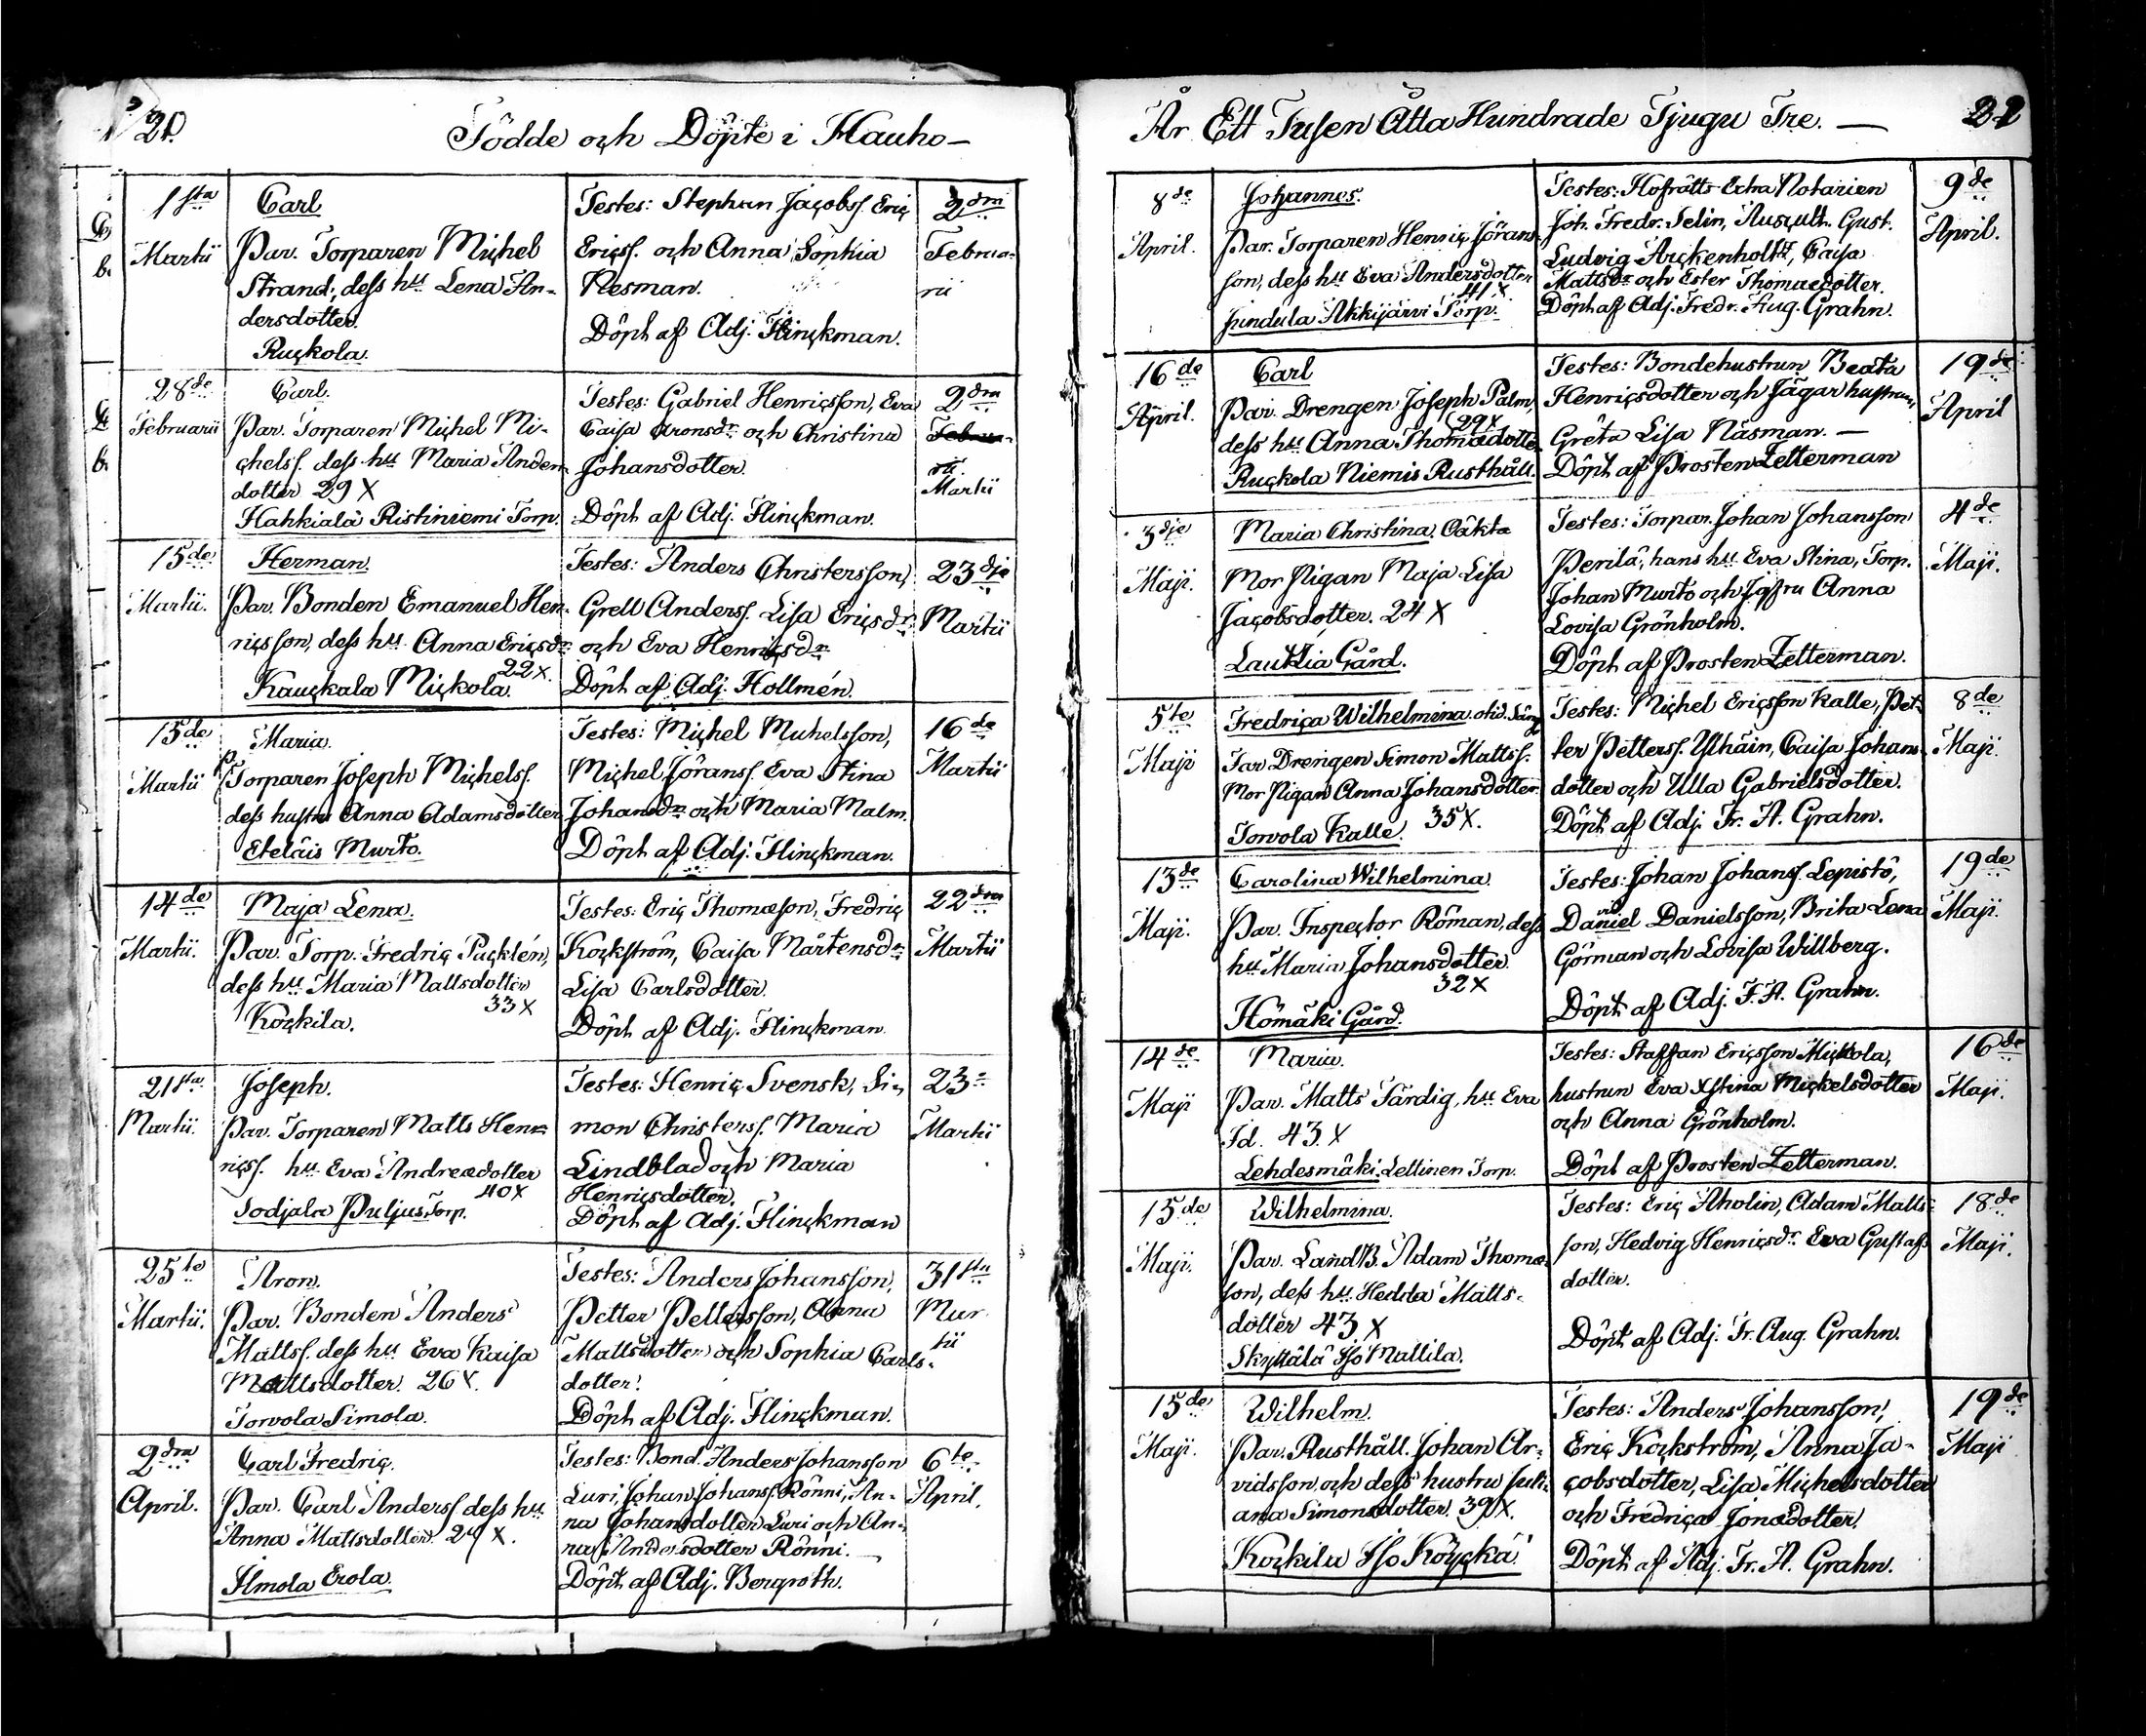 20.
Födde och Döpte i Hauho –
1sta
Martii
Carl
Par. Torparen Michel
Strand, dess hu Lena An-
dersdotter.
Ruckola.
Testes: Stephan Jacobss. Eric
Ericss. och Anna Sophia
Nesman.
Döpt af Adj. Flinckman.
2dra
Februa-
rii
28de
Februarii
Carl.
Par. Torparen Michel Mi-
chelss. dess hu Maria Anders
dotter 29 X
Hahkiala Ristiniemi Torp.
Testes: Gabriel Henricsson, Eva
Caisa Aronsdr och Christina
Johansdotter.
Döpt af Adj. Flinckman.
2dra
Februa-
rii.
Martii
15de
Martii.
Herman.
Par. Bonden Emanuel Hen-
ricsson, dess hu Anna Ericsdr
22 X.
Kauckala Mickola.
Testes: Anders Christersson,
Grels Anderss. Lisa Ericsdr
och Eva Henricsdr
Döpt af Adj. Hollmén.
23dje
Martii
15de
Martii
Maria.
P. Torparen Joseph Michelss.
dess hustru Anna Adamsdotter
Eteläis Murto.
Testes: Michel Michelsson,
Michel Jöranss. Eva Stina
Johansdr och Maria Malm.
Döpt af Adj. Flinckman.
16de
Martii
14de
Martii.
Maja Lena.
Par. Torp. Fredric Pucklén,
dess hu Maria Mattsdotter
33 X
Kockila.
Testes: Eric Thomæson, Fredric
Kockström, Caisa Mårtensdr
Lisa Carlsdotter.
Döpt af Adj. Flinckman.
22dra
Martii
21sta
Martii.
Joseph.
Par. Torparen Matts Hen-
ricss. hu Eva Andreædotter
40 X
Sodjala Puljus Torp.
Testes: Henric Svensk, Si-
mon Christerss. Maria
Lindblad och Maria
Henricsdotter.
Döpt af Adj. Flinckman
23
Martii
25te
Martii.
Aron.
Par. Bonden Anders
Mattss. dess hu Eva Kaisa
Mattsdotter. 26 X.
Torvola Simola.
Testes: Anders Johansson,
Petter Pettersson, Anna
Mattsdotter och Sophia Carls-
dotter.
Döpt af Adj. Flinckman.
31sta
Mar
tii
2dra
April.
Carl Fredric.
Par. Carl Anderss. dess hu
Anna Mattsdotter. 24 X.
Ilmola Erola.
Testes: Bond. Anders Johansson
Luri, Johan Johanss. Rönni, An-
na Johansdotter Luri och An-
na Andersdotter Rönni.
Döpt af Adj. Bergroth.
6te
April.
År Ett Tusen Åtta Hundrade Tjugu Tre. –
21
8de
April.
Johannes.
Par. Torparen Henric Jörans-
son, dess hu Eva Andersdotter
41 X.
Hindula Akkijärvi Torp.
Testes: Hofrätts Extra Notarien
Joh. Fredr. Telin, Auscult. Gust.
Ludvig Arckenholtz, Caisa
Mattsdr och Ester Thomædotter.
Döpt af Adj. Fredr. Aug. Grahn.
9de
April.
16de
April.
Carl
Par. Drengen Joseph Palm,
29 X
dess hu Anna Thomædotter
Ruckola Niemis Rusthåll.
Testes: Bondehustrun Beata
Henricsdotter och Jägar hustrun,
Greta Lisa Näsman. –
Döpt af Prosten Zetterman
19de
April
3dje
Maji.
Maria Christina. Oäkta
Mor Pigan Maja Lisa
Jacobsdotter. 24 X
Lautsia Gård.
Testes: Torpar. Johan Johansson
Perilä, hans hu Eva Stina, Torp.
Johan Murto och Jgfru Anna
Lovisa Grönholm.
Döpt af Prosten Zetterman.
4de
Maji.
5te
Maji
Fredrica Wilhelmina. otid. Säng
Far Drengen Simon Mattss.
Mor Pigan Anna Johansdotter.
35 X.
Torvola Kalle.
Testes: Michel Ericsson Kalle, Pet-
ter Petterss. Ylhäin, Caisa Johans-
dotter och Ulla Gabrielsdotter.
Döpt af Adj. Fr. A. Grahn.
8de
Maji.
13de
Maji.
Carolina Wilhelmina.
Par. Inspector Röman, dess
hu Maria Johansdotter.
32 X
Hömäki Gård.
Testes: Johan Johanss. Lepistö,
Daniel Danielsson, Brita Lena
Görman och Lovisa Willberg.
Döpt af Adj. F. A. Grahn.
19de
Maji.
14de
Maji
Maria.
Par. Matts Färdig, hu Eva
Id. 43. X
Lehdesmäki Lettinen Torp.
Testes: Staffan Ericsson Mickola,
hustrun Eva Xstina Mickelsdotter
och Anna Grönholm.
Döpt af Prosten Zetterman.
16de
Maji.
15de
Maji.
Wilhelmina.
Par. LandB. Adam Thomæ-
son, dess hu Hedda Matts-
dotter 43 X
Skyttälä Iso Mattila.
Testes: Eric Aholin, Adam Matts-
son, Hedvig Henricsdr. Eva Gustafs
dotter.
Döpt af Adj. Fr. Aug. Grahn.
18de
Maji.
15de
Maji.
Wilhelm.
Par. Rusthåll. Johan Ar-
vidsson och dess hustru Juli-
ana Simonsdotter. 39 X.
Kockila Iso Köyckä.
Testes: Anders Johansson,
Eric Kockström, Anna Ja-
cobsdotter, Lisa Michelsdotter
och Fredrica Jonædotter.
Döpt af Adj. Fr. A. Grahn.
19de
Maji